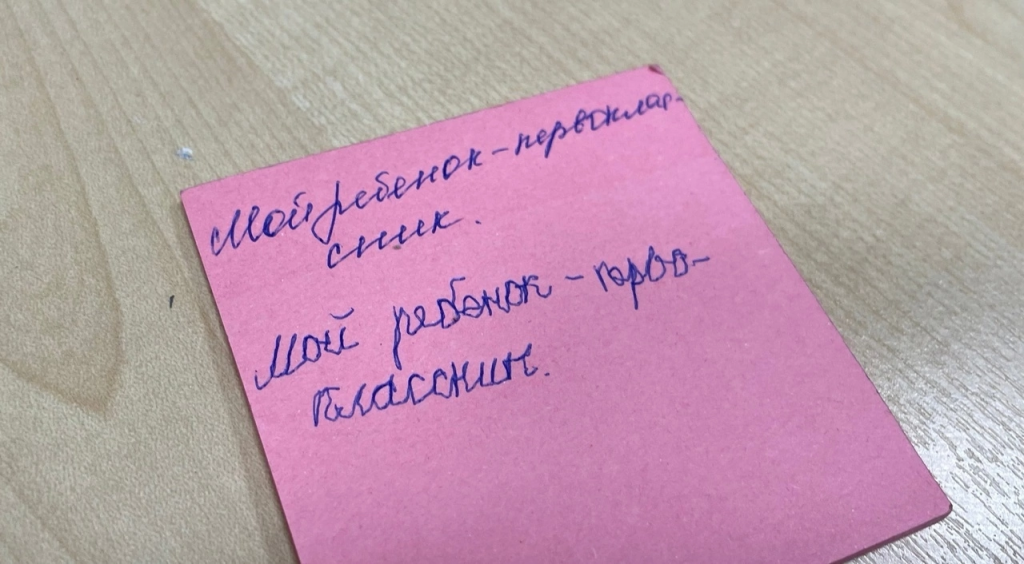 Мой ребенок - первоклас-
сник.
Мой ребенок - перво-
классник.